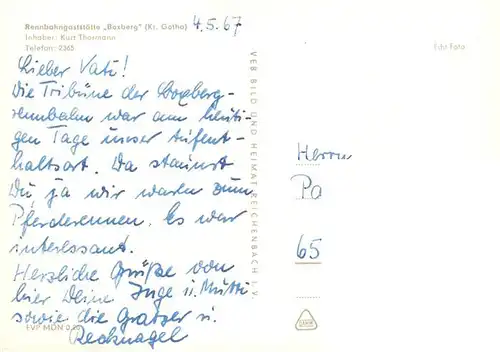 Rennbahngaststätte „Boxberg" (Kr. Gotha)
Inhaber: Kurt Thormann
Telefon: 2365
4.5.67
Lieber Vati!
Die Tribüne der Boxberg-
rennbahn war am heuti-
gen Tage unser Aufent-
haltsort. Da staunst
Du, ja wir waren zum
Pferderennen. Es war
interessant.
Herzliche Grüße von
hier Deine Inge u. Mutti
sowie die Gratzer u.
Recknagel
EVP MDN 0,20
VEB BILD UND HEIMAT REICHENBACH I. V.
Echt Foto
Herrn
Pa
65